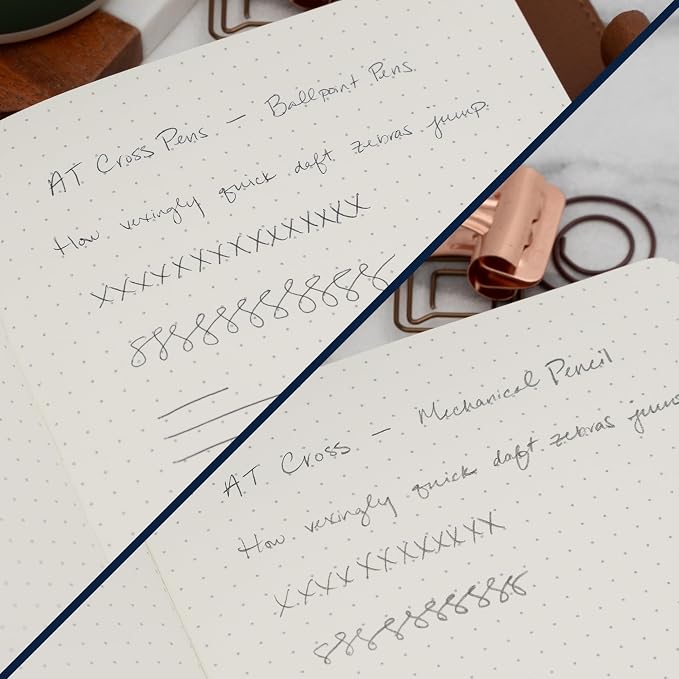 A.T. Cross Pens — Ballpoint Pens
How vexingly quick daft zebras jump.
XXXXXXXXXXXXXXXX
888888888888
A.T. Cross — Mechanical Pencil
How vexingly quick daft zebras jump
XXXXXXXXXXXXX
8888888888